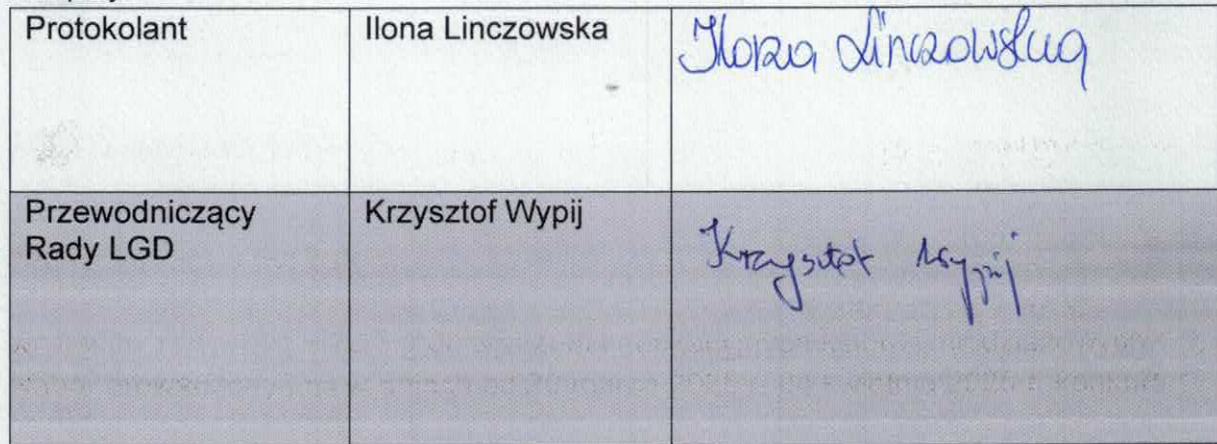 Protokolant
Ilona Linczowska
Ilona Linczowska
Przewodniczący
Rady LGD
Krzysztof Wypij
Krzysztof Wypij